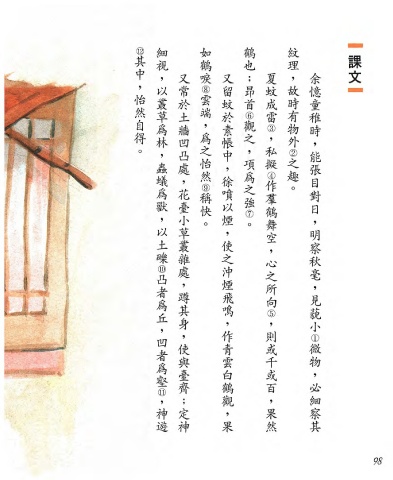 課文
余憶童稚時，能張目對日，明察秋毫，見藐小①微物，必細察其
紋理，故時有物外②之趣。
夏蚊成雷③，私擬④作羣鶴舞空，心之所向⑤，則或千或百，果然
鶴也；昂首⑥觀之，項為之強⑦。
又留蚊於素帳中，徐噴以煙，使之沖煙飛鳴，作青雲白鶴觀，果
如鶴唳⑧雲端，為之怡然⑨稱快。
又常於土牆凹凸處，花臺小草叢雜處，蹲其身，使與臺齊；定神
細視，以叢草為林，蟲蟻為獸，以土礫⑩凸者為丘，凹者為壑⑪，神遊
⑫其中，怡然自得。
98